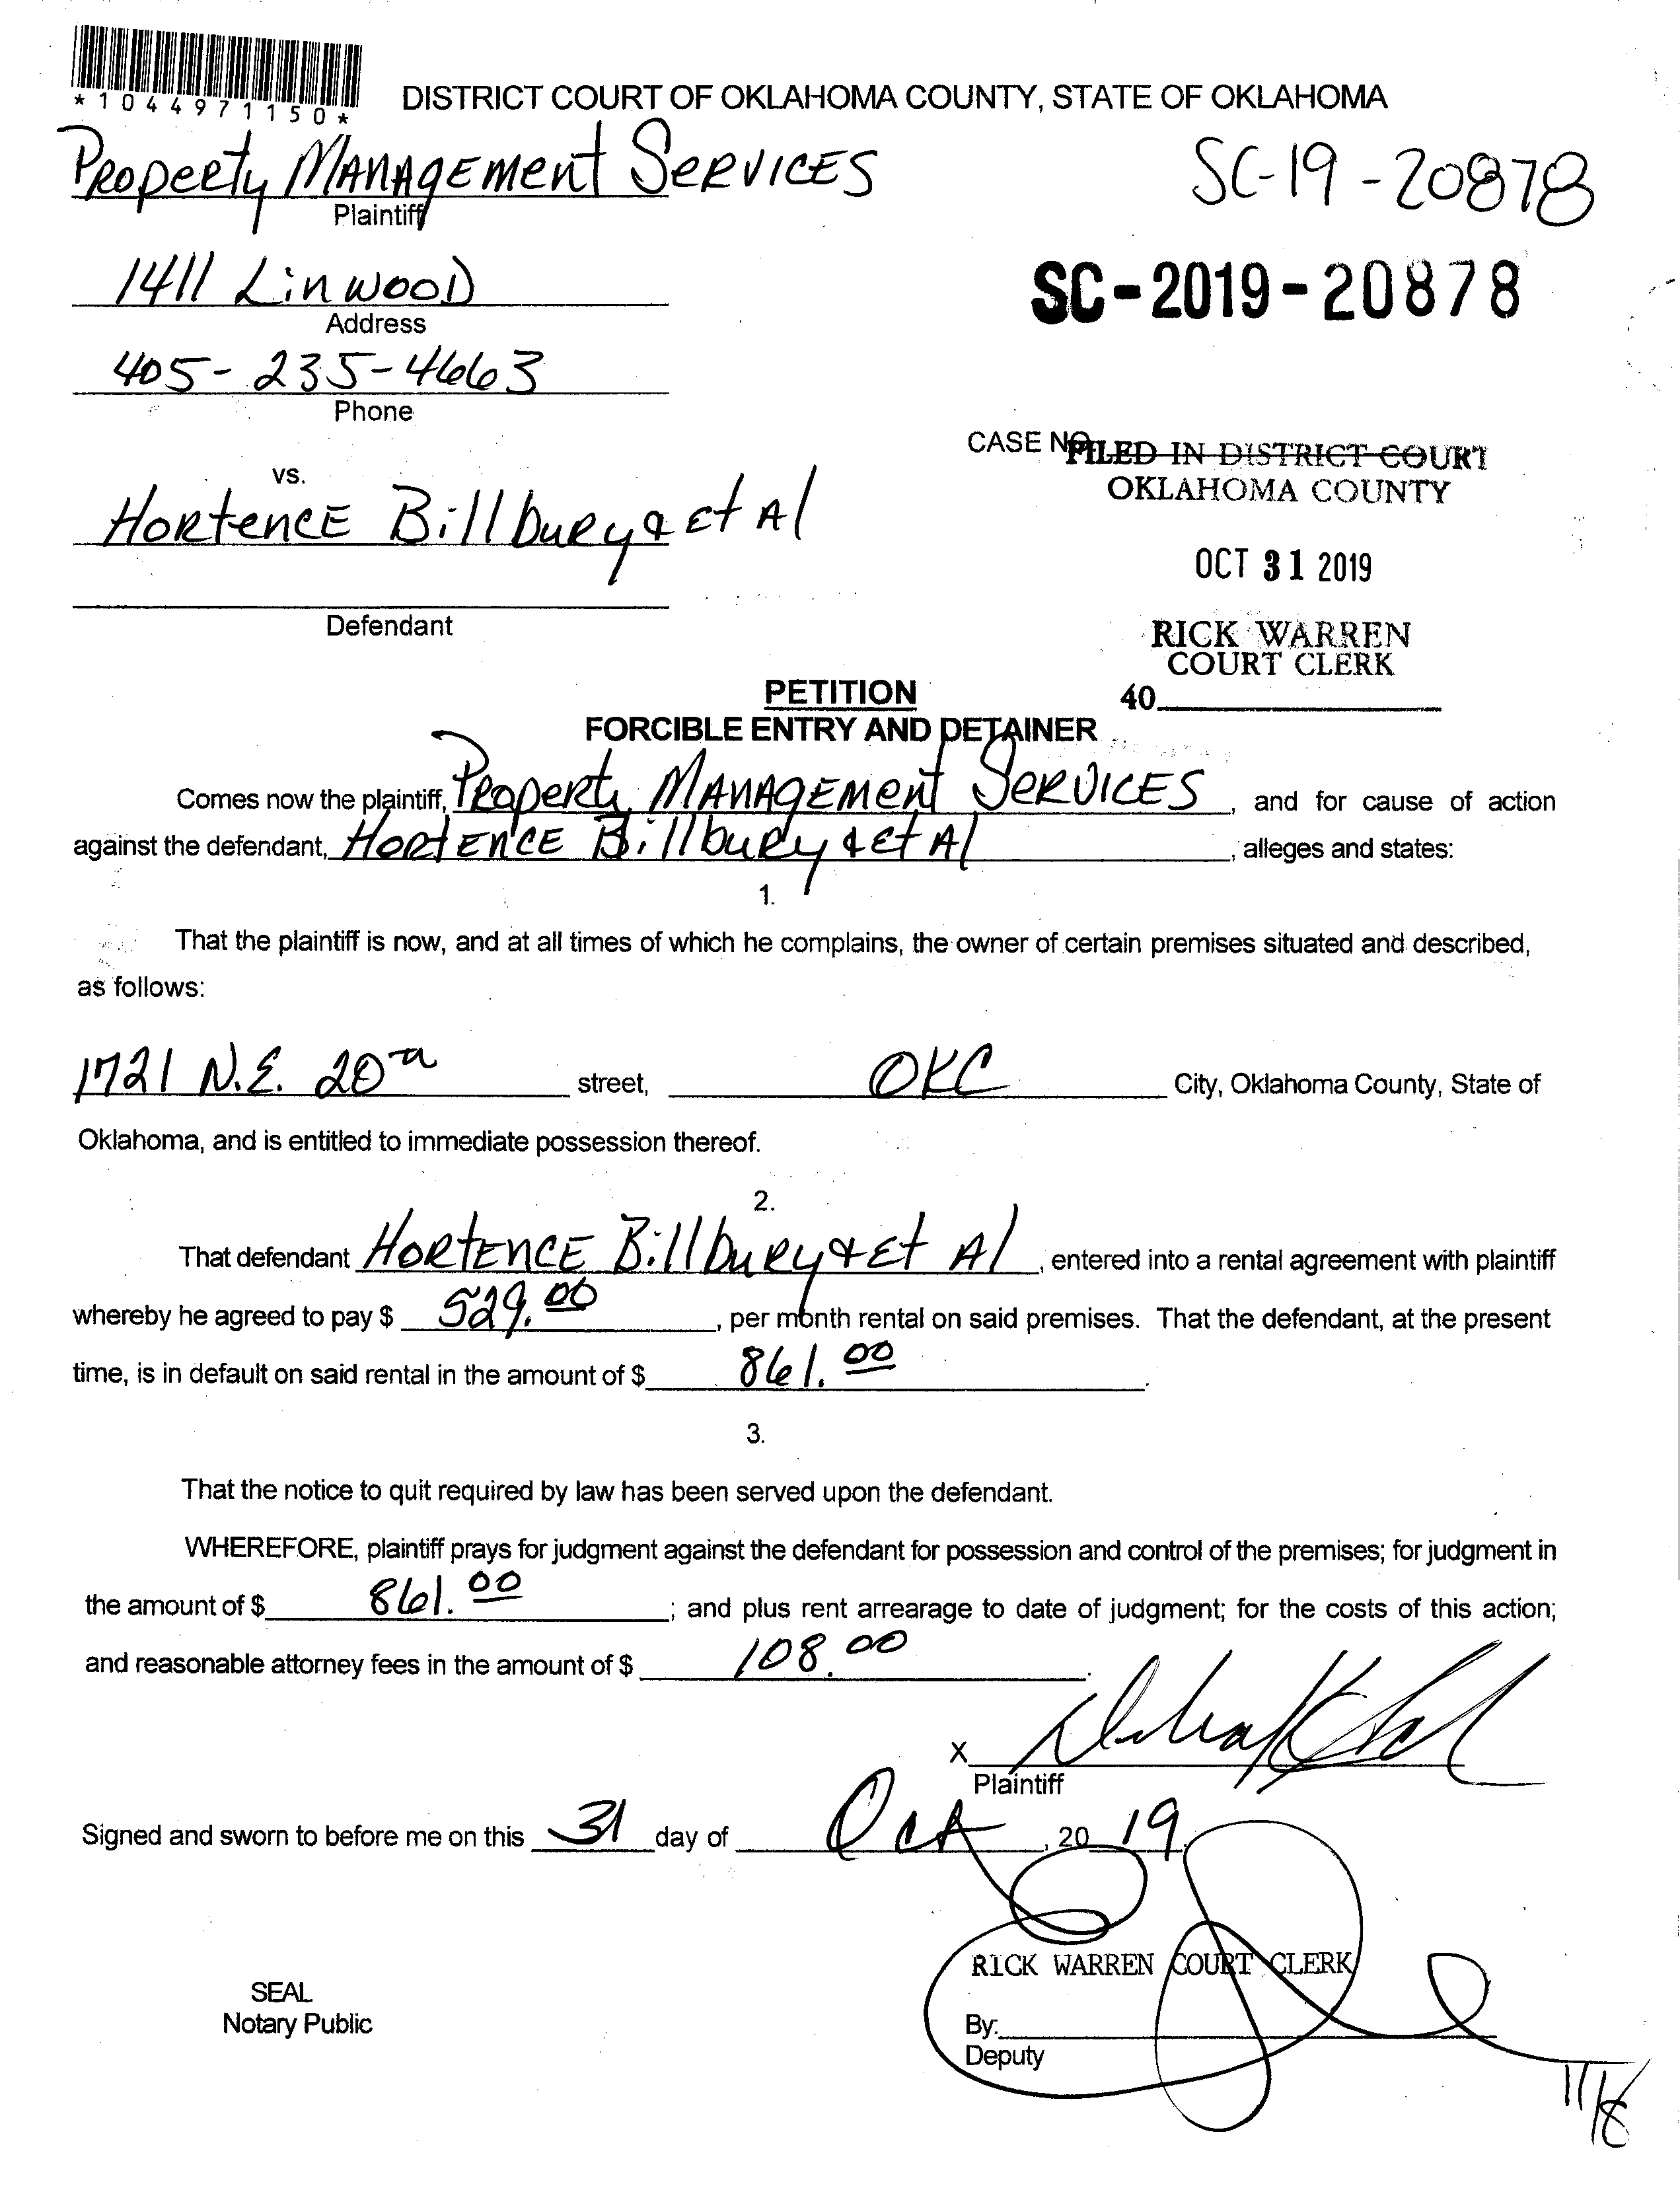 *1044971150*
DISTRICT COURT OF OKLAHOMA COUNTY, STATE OF OKLAHOMA
Property Management Services
SC-19-20878
Plaintiff
1411 Linwood
SC-2019-20878
Address
405-235-4663
Phone
CASE NO.
FILED IN DISTRICT COURT
OKLAHOMA COUNTY
vs.
Hortence Billbury & et Al
OCT 31 2019
Defendant
RICK WARREN
COURT CLERK
40
PETITION
FORCIBLE ENTRY AND DETAINER
Comes now the plaintiff, Property Management Services, and for cause of action
against the defendant, Hortence Billbury & et Al, alleges and states:
1.
That the plaintiff is now, and at all times of which he complains, the owner of certain premises situated and described,
as follows:
1721 N.E. 20th street, OKC City, Oklahoma County, State of
Oklahoma, and is entitled to immediate possession thereof.
2.
That defendant Hortence Billbury & Et Al, entered into a rental agreement with plaintiff
whereby he agreed to pay $ 529.00, per month rental on said premises. That the defendant, at the present
time, is in default on said rental in the amount of $ 861.00.
3.
That the notice to quit required by law has been served upon the defendant.
WHEREFORE, plaintiff prays for judgment against the defendant for possession and control of the premises; for judgment in
the amount of $ 861.00; and plus rent arrearage to date of judgment; for the costs of this action;
and reasonable attorney fees in the amount of $ 108.00.
X
Plaintiff
Signed and sworn to before me on this 31 day of Oct, 20 19.
RICK WARREN COURT CLERK
SEAL
Notary Public
By:
Deputy
11/8